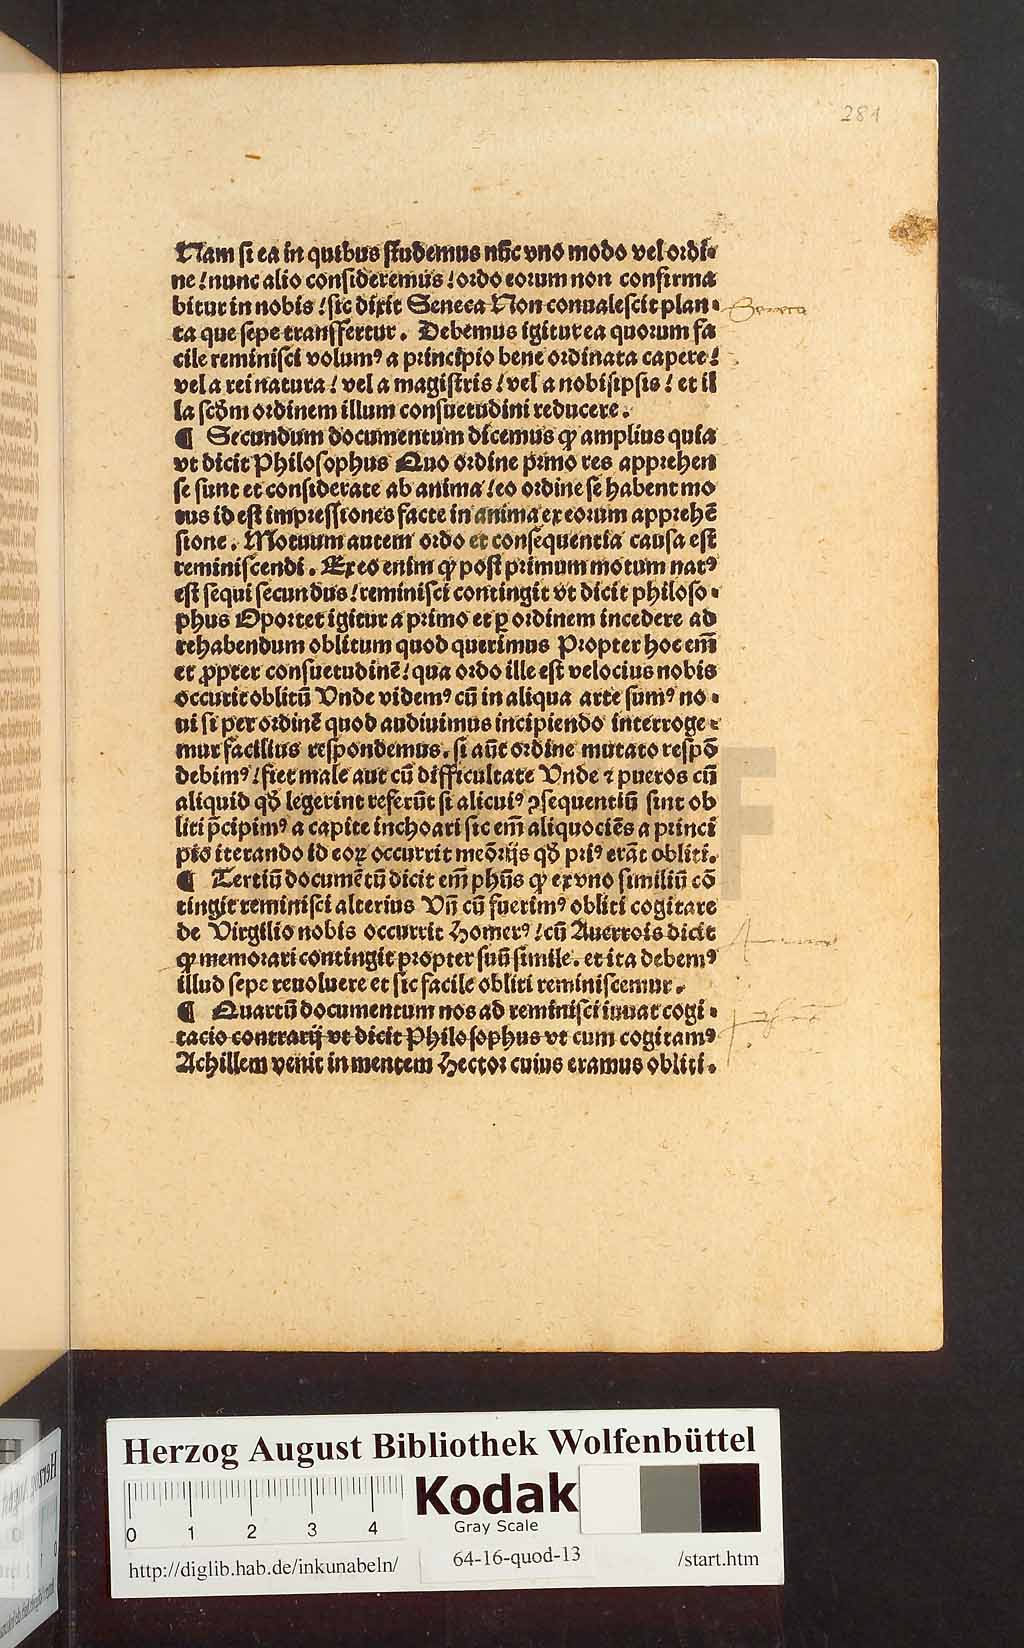 281
Nam si ea in quibus studemus nūc vno modo vel ordi⸗
ne / nunc alio consideremus / ordo eorum non confirma
bitur in nobis / sic dixit Seneca Non conualescit plan⸗
ta que sepe transfertur. Debemus igitur ea quorum fa
cile reminisci volumꝰ a principio bene ordinata capere /
vel a rei natura / vel a magistris / vel a nobisipsis / et il
la scd̄m ordinem illum consuetudini reducere.
¶ Secundum documentum dicemus ꝙ amplius quia
vt dicit Philosophus Quo ordine p̄rmo res apprehen
se sunt et considerate ab anima / eo ordine se habent mo
tus id est impressiones facte in anima ex eorum apprehē
sione. Motuum autem ordo et consequentia causa est
reminiscendi. Ex eo enim ꝙ post primum motum natꝰ
est sequi secundus / reminisci contingit vt dicit philoso⸗
phus Oportet igitur a primo et ꝑ ordinem incedere ad
rehabendum oblitum quod querimus Propter hoc em̄
et ꝓpter consuetudinē / qua ordo ille est velocius nobis
occurit oblitū Vnde videmꝰ cū in aliqua arte sumꝰ no⸗
ui si per ordinē quod audiuimus incipiendo interroge⸗
mur facilius respondemus. si aūt ordine mutato respō
debimꝰ / fiet male aut cū difficultate Vnde ⁊ pueros cū
aliquid qd̄ legerint referūt si alicuiꝰ ꝯsequentiū sint ob
liti p̄cipimꝰ a capite inchoari sic em̄ aliquociēs a princi
pio iterando id eoꝝ occurrit meōrijs qd̄ priꝰ erāt obliti.
¶ Tertiū documētū dicit em̄ ph̄us ꝙ ex vno similiū cō
tingit reminisci alterius Vn̄ cū fuerimꝰ obliti cogitare
de Virgilio nobis occurrit Homerꝰ / cū Auerrois dicit
ꝙ memorari contingit propter suū simile. et ita debemꝰ
illud sepe reuoluere et sic facile obliti reminiscemur.
¶ Quartū documentum nos ad reminisci iuuat cogi⸗
tacio contrarij vt dicit Philosophus vt cum cogitamꝰ
Achillem venit in mentem Hector cuius eramus obliti.
Seneca
Herzog August Bibliothek Wolfenbüttel
0 1 2 3 4
Kodak
Gray Scale
http://diglib.hab.de/inkunabeln/
64-16-quod-13
/start.htm